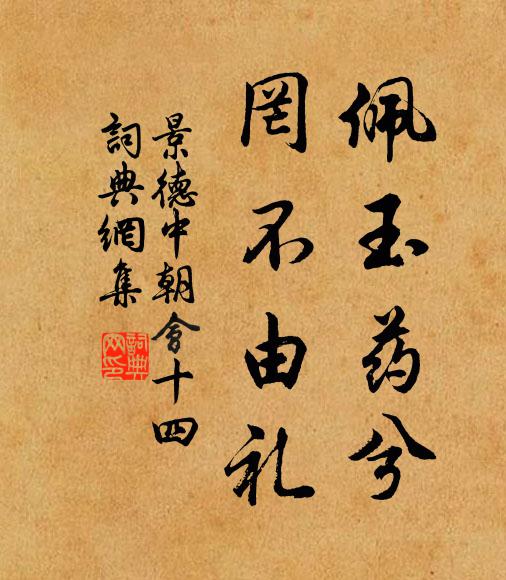 佩玉药兮
罔不由礼
景德中朝會十四
詞典網集
詞典
网印